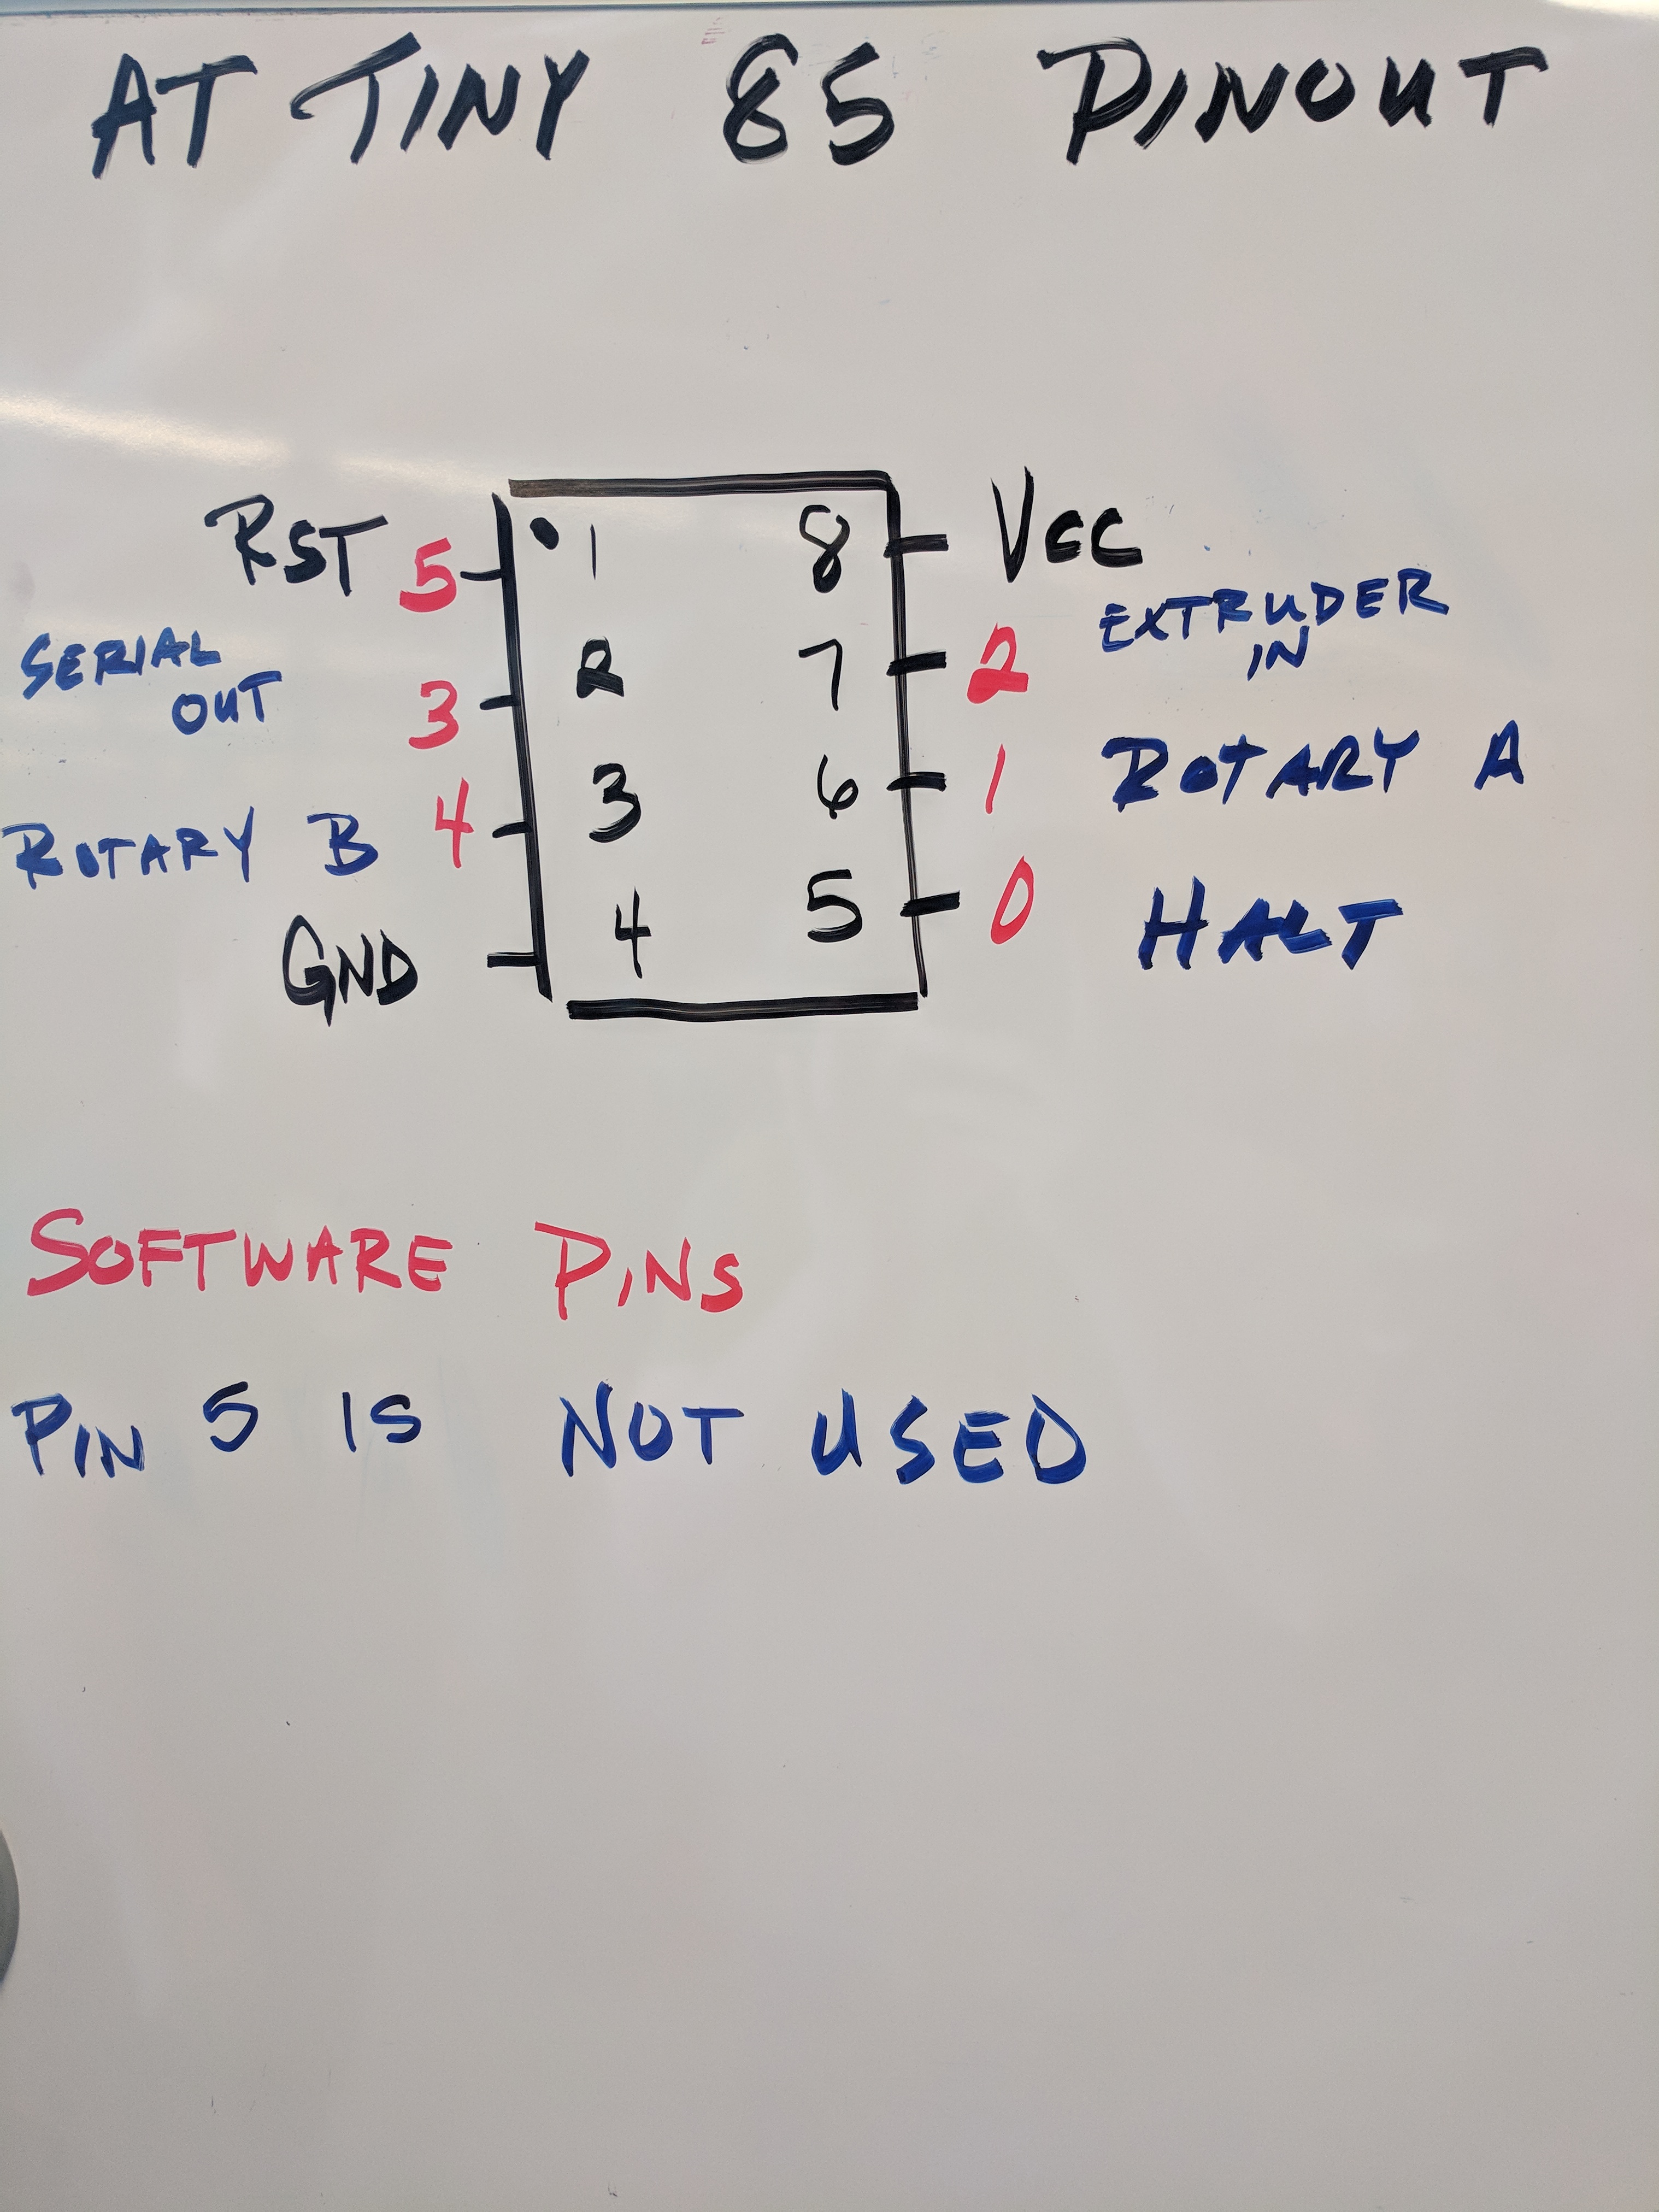 AT TINY 85 PINOUT
RST 5 1 8 VCC
SERIAL
OUT 3 2 7 2 EXTRUDER
IN
ROTARY B 4 3 6 1 ROTARY A
GND 4 5 0 HALT
SOFTWARE PINS
PIN 5 IS NOT USED